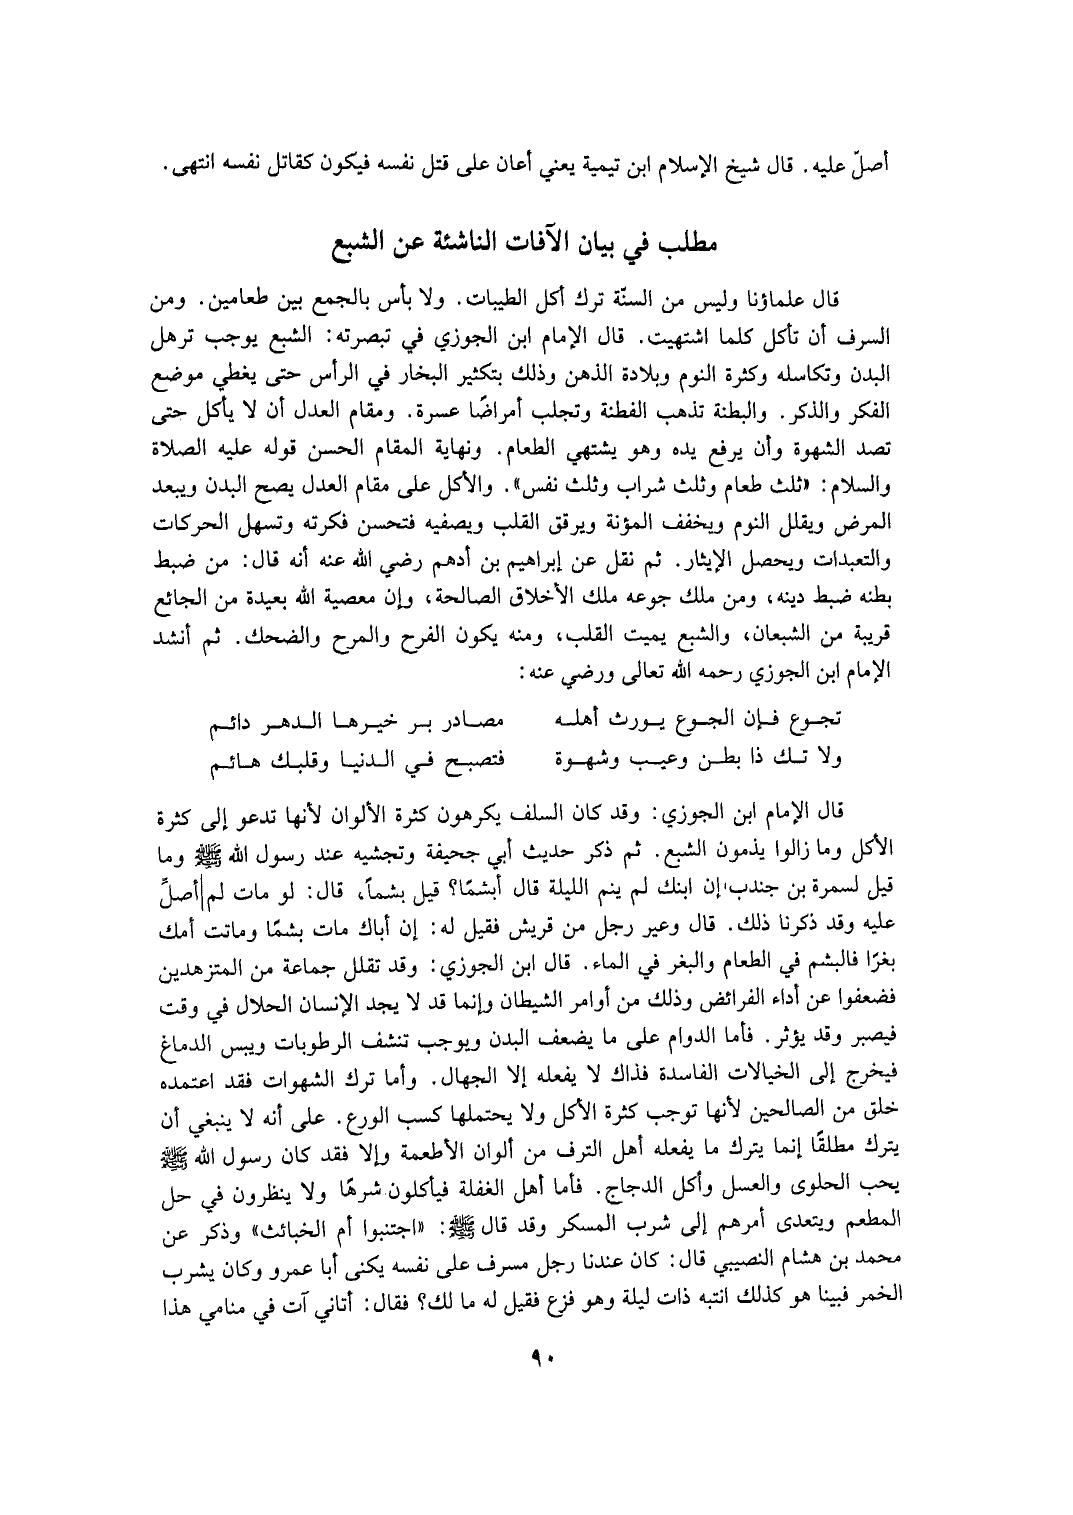 أصلّ عليه. قال شيخ الإسلام ابن تيمية يعني أعان على قتل نفسه فيكون كقاتل نفسه انتهى.
مطلب في بيان الآفات الناشئة عن الشبع
قال علماؤنا وليس من السنّة ترك أكل الطيبات. ولا بأس بالجمع بين طعامين. ومن
السرف أن تأكل كلما اشتهيت. قال الإمام ابن الجوزي في تبصرته: الشبع يوجب ترهل
البدن وتكاسله وكثرة النوم وبلادة الذهن وذلك بتكثير البخار في الرأس حتى يغطي موضع
الفكر والذكر. والبطنة تذهب الفطنة وتجلب أمراضًا عسرة. ومقام العدل أن لا يأكل حتى
تصد الشهوة وأن يرفع يده وهو يشتهي الطعام. ونهاية المقام الحسن قوله عليه الصلاة
والسلام: «ثلث طعام وثلث شراب وثلث نفس». والأكل على مقام العدل يصح البدن ويبعد
المرض ويقلل النوم ويخفف المؤنة ويرقق القلب ويصفيه فتحسن فكرته وتسهل الحركات
والتعبدات ويحصل الإيثار. ثم نقل عن إبراهيم بن أدهم رضي الله عنه أنه قال: من ضبط
بطنه ضبط دينه، ومن ملك جوعه ملك الأخلاق الصالحة، وإن معصية الله بعيدة من الجائع
قريبة من الشبعان، والشبع يميت القلب، ومنه يكون الفرح والمرح والضحك. ثم أنشد
الإمام ابن الجوزي رحمه الله تعالى ورضي عنه:
تجوع فإن الجوع يورث أهله مصادر بر خيرها الدهر دائم
ولا تك ذا بطن وعيب وشهوة فتصبح في الدنيا وقلبك هائم
قال الإمام ابن الجوزي: وقد كان السلف يكرهون كثرة الألوان لأنها تدعو إلى كثرة
الأكل وما زالوا يذمون الشبع. ثم ذكر حديث أبي جحيفة وتجشيه عند رسول الله ﷺ وما
قيل لسمرة بن جندب إن ابنك لم ينم الليلة قال أبشمًا؟ قيل بشماً، قال: لو مات لم أصلِّ
عليه وقد ذكرنا ذلك. قال وعير رجل من قريش فقيل له: إن أباك مات بشمًا وماتت أمك
بغرًا فالبشم في الطعام والبغر في الماء. قال ابن الجوزي: وقد تقلل جماعة من المتزهدين
فضعفوا عن أداء الفرائض وذلك من أوامر الشيطان وإنما قد لا يجد الإنسان الحلال في وقت
فيصبر وقد يؤثر. فأما الدوام على ما يضعف البدن ويوجب تنشف الرطوبات ويبس الدماغ
فيخرج إلى الخيالات الفاسدة فذاك لا يفعله إلا الجهال. وأما ترك الشهوات فقد اعتمده
خلق من الصالحين لأنها توجب كثرة الأكل ولا يحتملها كسب الورع. على أنه لا ينبغي أن
يترك مطلقًا إنما يترك ما يفعله أهل الترف من ألوان الأطعمة وإلا فقد كان رسول الله ﷺ
يحب الحلوى والعسل وأكل الدجاج. فأما أهل الغفلة فيأكلون شرهًا ولا ينظرون في حل
المطعم ويتعدى أمرهم إلى شرب المسكر وقد قال ﷺ: «اجتنبوا أم الخبائث» وذكر عن
محمد بن هشام النصيبي قال: كان عندنا رجل مسرف على نفسه يكنى أبا عمرو وكان يشرب
الخمر فبينا هو كذلك انتبه ذات ليلة وهو فزع فقيل له ما لك؟ فقال: أتاني آت في منامي هذا
٩٠